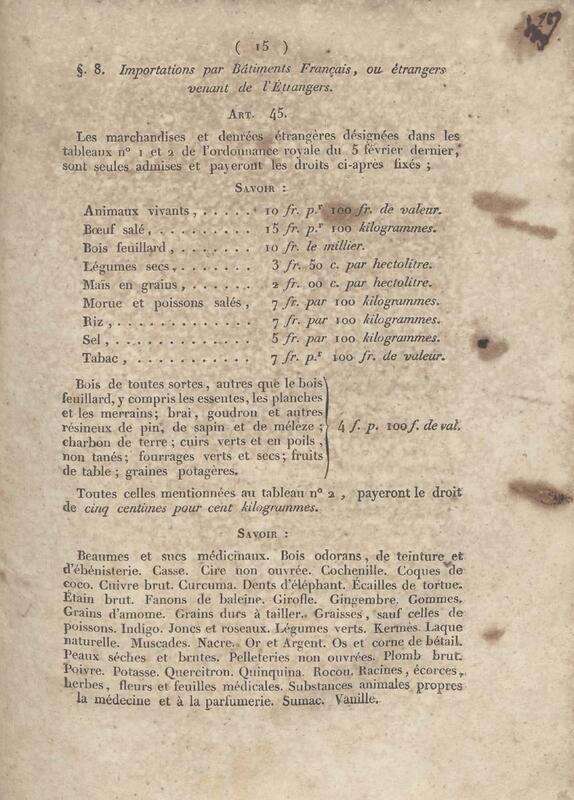 ( 15 )
§. 8. Importations par Bâtiments Français, ou étrangers
venant de l'Étrangers.
ART. 45.
Les marchandises et denrées étrangères désignées dans les
tableaux n° 1 et 2 de l'ordonnance royale du 5 février dernier,
sont seules admises et payeront les droits ci-après fixés ;
SAVOIR :
Animaux vivants, . . . . . 10 fr. p.r 100 fr. de valeur.
Bœuf salé, . . . . . . . . . 15 fr. p.r 100 kilogrammes.
Bois feuillard, . . . . . . . 10 fr. le millier.
Légumes secs, . . . . . . . 3 fr. 50 c. par hectolitre.
Maïs en grains, . . . . . . 2 fr. 00 c. par hectolitre.
Morue et poissons salés, 7 fr. par 100 kilogrammes.
Riz, . . . . . . . . . . . . 7 fr. par 100 kilogrammes.
Sel, . . . . . . . . . . . . 5 fr. par 100 kilogrammes.
Tabac, . . . . . . . . . . . 7 fr. p.r 100 fr. de valeur.
Bois de toutes sortes, autres que le bois
feuillard, y compris les essentes, les planches
et les merrains; brai, goudron et autres
résineux de pin, de sapin et de mélèze ; 4 f. p. 100 f. de val.
charbon de terre ; cuirs verts et en poils,
non tanés; fourrages verts et secs; fruits
de table ; graines potagères.
Toutes celles mentionnées au tableau n° 2, payeront le droit
de cinq centimes pour cent kilogrammes.
SAVOIR :
Beaumes et sucs médicinaux. Bois odorans, de teinture et
d'ébénisterie. Casse. Cire non ouvrée. Cochenille. Coques de
coco. Cuivre brut. Curcuma. Dents d'éléphant. Écailles de tortue.
Étain brut. Fanons de baleine. Girofle. Gingembre. Gommes.
Grains d'amome. Grains durs à tailler. Graisses, sauf celles de
poissons. Indigo. Joncs et roseaux. Légumes verts. Kermès. Laque
naturelle. Muscades. Nacre. Or et Argent. Os et corne de bétail.
Peaux séches et brutes. Pelleteries non ouvrées. Plomb brut.
Poivre. Potasse. Quercitron. Quinquina. Rocou. Racines, écorces,
herbes, fleurs et feuilles médicales. Substances animales propres
à la médecine et à la parfumerie. Sumac. Vanille.